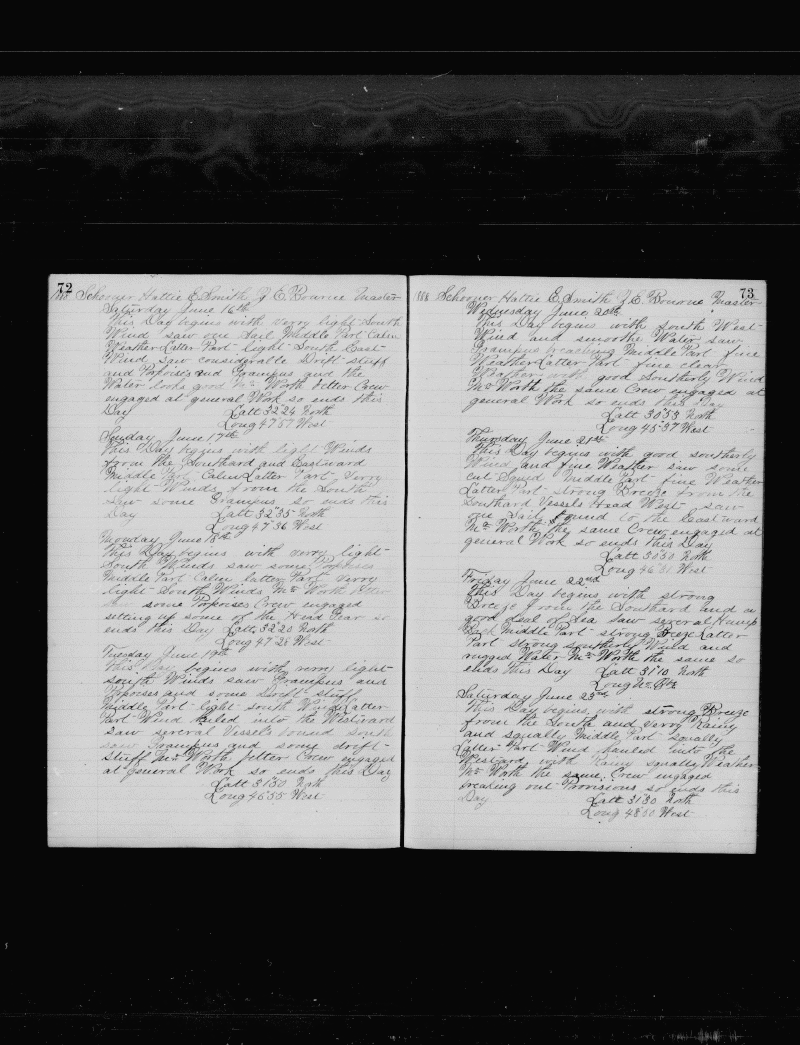 72
1888 Schooner Hattie E Smith J E Bourne Master
Saturday June 16th
This Day begins with verry light South
Wind saw one Sail Middle Part Calm
Weather Latter Part light South East
Wind Saw considerable Drift stuff
and Porpoises and Grampus and the
Water looks good Mr Worth better Crew
engaged at general Work so ends this
Day Latt 32"24 North
Long 47"57 West
Sunday June 17th
This Day begins with light Winds
from the Southard and Eastward
Middle Part Calm Latter Part Verry
light Winds from the South
Saw some Grampus so ends this
Day Latt 32"35 North
Long 47"36 West
Monday June 18th
This Day begins with verry light
South Winds saw some Porpoises
Middle Part Calm Latter Part Verry
light South Winds Mr Worth better
saw some Porpoises Crew engaged
setting up some of the Head Gear so
ends this Day Latt 32"20 North
Long 47"28 West
Tuesday June 19th
This Day begins with verry light
south Winds saw Grampus and
Poposes and some Drift stuff
Middle Part light south Wind Latter
Part Wind hauled into the Westward
saw several Vessels bound South
saw Grampus and some drift
stuff Mr Worth better Crew engaged
at general Work so ends this Day
Latt 31"30 North
Long 46"55 West
73
1888 Schooner Hattie E Smith J E Bourne Master
Wednesday June 20th
This Day begins with South West
Wind and smoothe Water saw
Grampus breaching Middle Part fine
Weather Latter Part fine clear
Weather with good Southerly Wind
Mr Worth the same Crew engaged at
general Work so ends this Day
Latt 30"53 North
Long 45"37 West
Thursday June 21st
This Day begins with good southerly
Wind and fine Weather saw some
cut Squid Middle Part fine Weather
Latter Part strong Breeze from the
Southard Vessels Head West saw
one Sail bound to the Eastward
Mr Worth the same Crew engaged at
general Work so ends this Day
Latt 30"30 North
Long 46" West
Friday June 22nd
This Day begins with strong
Breeze from the Southard and a
good deal of Sea Saw several Hump
Back Middle Part strong Breze Latter
Part strong southerly Wind and
rugged Water Mr Worth the same so
ends this Day Latt 31"10 North
Long No Obs
Saturday June 23rd
This Day begins with strong Breeze
from the South and verry Rainy
and squally Middle Part squally
Latter Part Wind hauled into the
Westard with Rainy squally Weather
Mr Worth the same Crew engaged
breaking out Provisions so ends this
Day Latt 31"30 North
Long 48"50 West